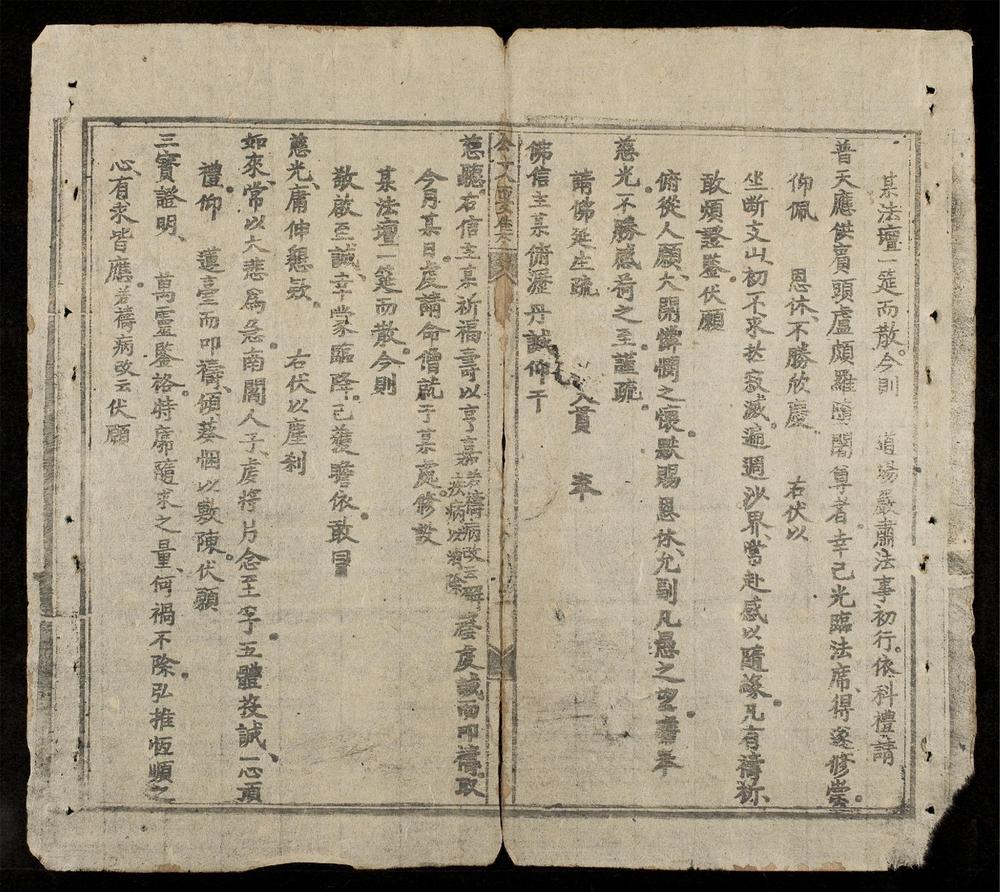 某法壇一筵而散。今則　道場嚴肅法事初行。依科禮請
普天應供賓頭盧頗羅隨闍尊者。幸已光臨法席、得遂修崇。
仰佩　恩休、不勝欣慶　右伏以
坐斷支山、初不求於寂滅。遍週沙界、常赴感以隨緣。凡有禱祈、
敢煩證鑒。伏願
俯從人願、大開憚憫之懷、默賜恩休、允副凡愚之望。專奉
慈光。不勝感荷之至。謹疏。
請佛延生疏　入貫　奉
佛信主某俯瀝丹誠仰干
慈聽。右信主某祈福壽以亨嘉若禱病改云解
疾病以消除
發虔誠而叩禱。取
今月某日。虔請命僧就于某處。修設
某法壇一筵而散。今則
敬啟至誠幸蒙臨降。已獲瞻依。敢冒
慈光、庸伸懇款。　右伏以塵剎
如來、常以大悲爲急。南閻人子、虔將片念至孚。五體投誠、一心頂
禮。仰　蓮臺而叩禱、傾葵悃以敷陳。伏願
三寶證明、　萬靈鑒格。特廓隨求之量、何禍不除。弘推恆順之
心、有求皆應。若禱病改云伏願